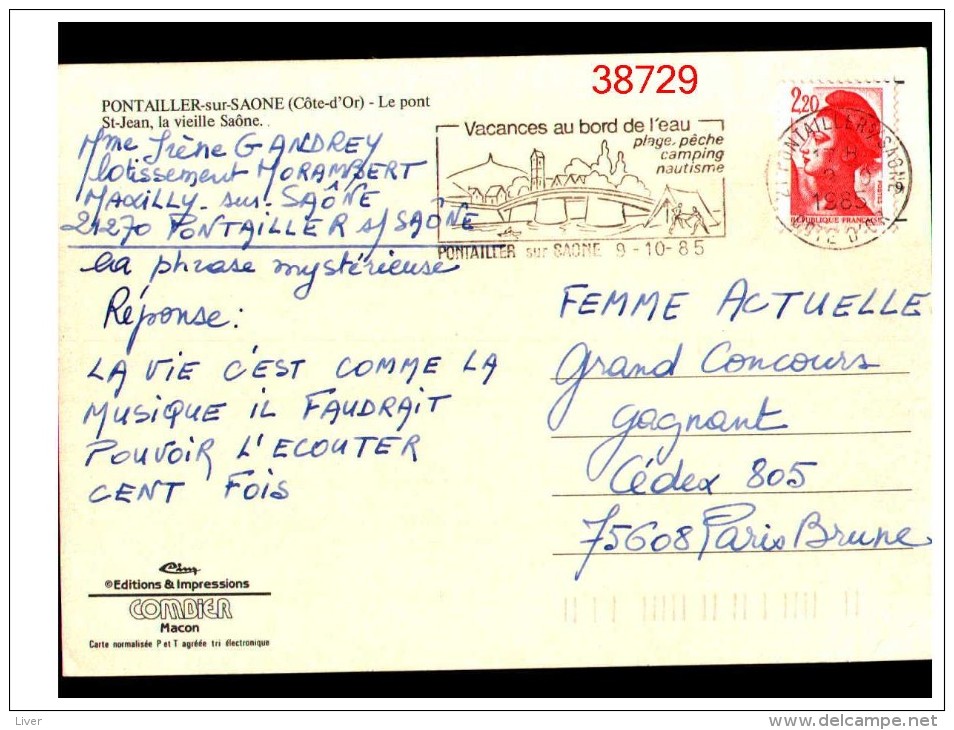 38729
PONTAILLER-sur-SAONE (Côte-d'Or) - Le pont
St-Jean, la vieille Saône.
Mme Irène GANDREY
lotissement MORAMBERT
MAXILLY-sur-SAÔNE
21270 PONTAILLER s/SAÔNE
La phrase mystérieuse
Réponse:
LA VIE C'EST COMME LA
MUSIQUE IL FAUDRAIT
POUVOIR L'ECOUTER
CENT FOIS
Vacances au bord de l'eau
plage. pêche
camping
nautisme
PONTAILLER sur SAONE 9-10-85
2,20
REPUBLIQUE FRANÇAISE
PONTAILLER S/ SAONE
1985
COTE D'OR
FEMME ACTUELLE
Grand Concours
gagnant
Cédex 805
75608 Paris Brune
Cim
©Editions & Impressions
COMBIER
Macon
Carte normalisée P et T agréée tri électronique
Liver
delcampe.net